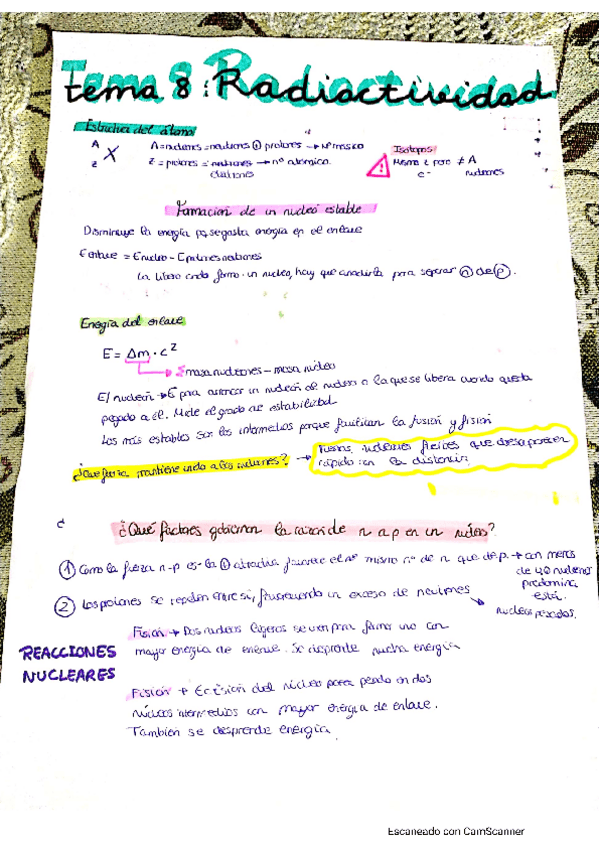 Tema 8: Radiactividad
Estructura del átomo
A
Z X
A = nucleones = neutrones + protones → nº másico
Z = protones = → nº atómico
electrones
Isótopos
Misma Z pero ≠ A
e- neutrones
Formación de un núcleo estable
Disminuye la energía pq se gasta energía en el enlace
E enlace = E núcleo - E
La libero cuando formo un núcleo, hay que añadirla para separar n de p.
Energía del enlace
E = Δm · c²
Σ masa nucleones - masa núcleo
E/ nucleón → E para arrancar un nucleón del núcleo o la que se libera cuando queda
pegado a él. Mide el grado de estabilidad
Los más estables son los intermedios porque facilitan la fusión y fisión
¿Qué fuerza mantiene unido a los nucleones? →
Fuerzas nucleares fuertes que desaparecen
rápido con la distancia.
¿Qué factores gobiernan la razón de n a p en un núcleo?
1 Como la fuerza n-p es la atractiva favorece el mismo nº de n que de p. → con menos
de 40 nucleones
predomina
esta.
2 Los protones se repelen entre sí, favoreciendo un exceso de neutrones
núcleos pesados.
REACCIONES
NUCLEARES
Fusión → Dos núcleos ligeros se unen para formar uno con
mayor energía de enlace. Se desprende mucha energía
Fisión → Escisión del núcleo pesado en dos
núcleos intermedios con mayor energía de enlace.
También se desprende energía.
Escaneado con CamScanner